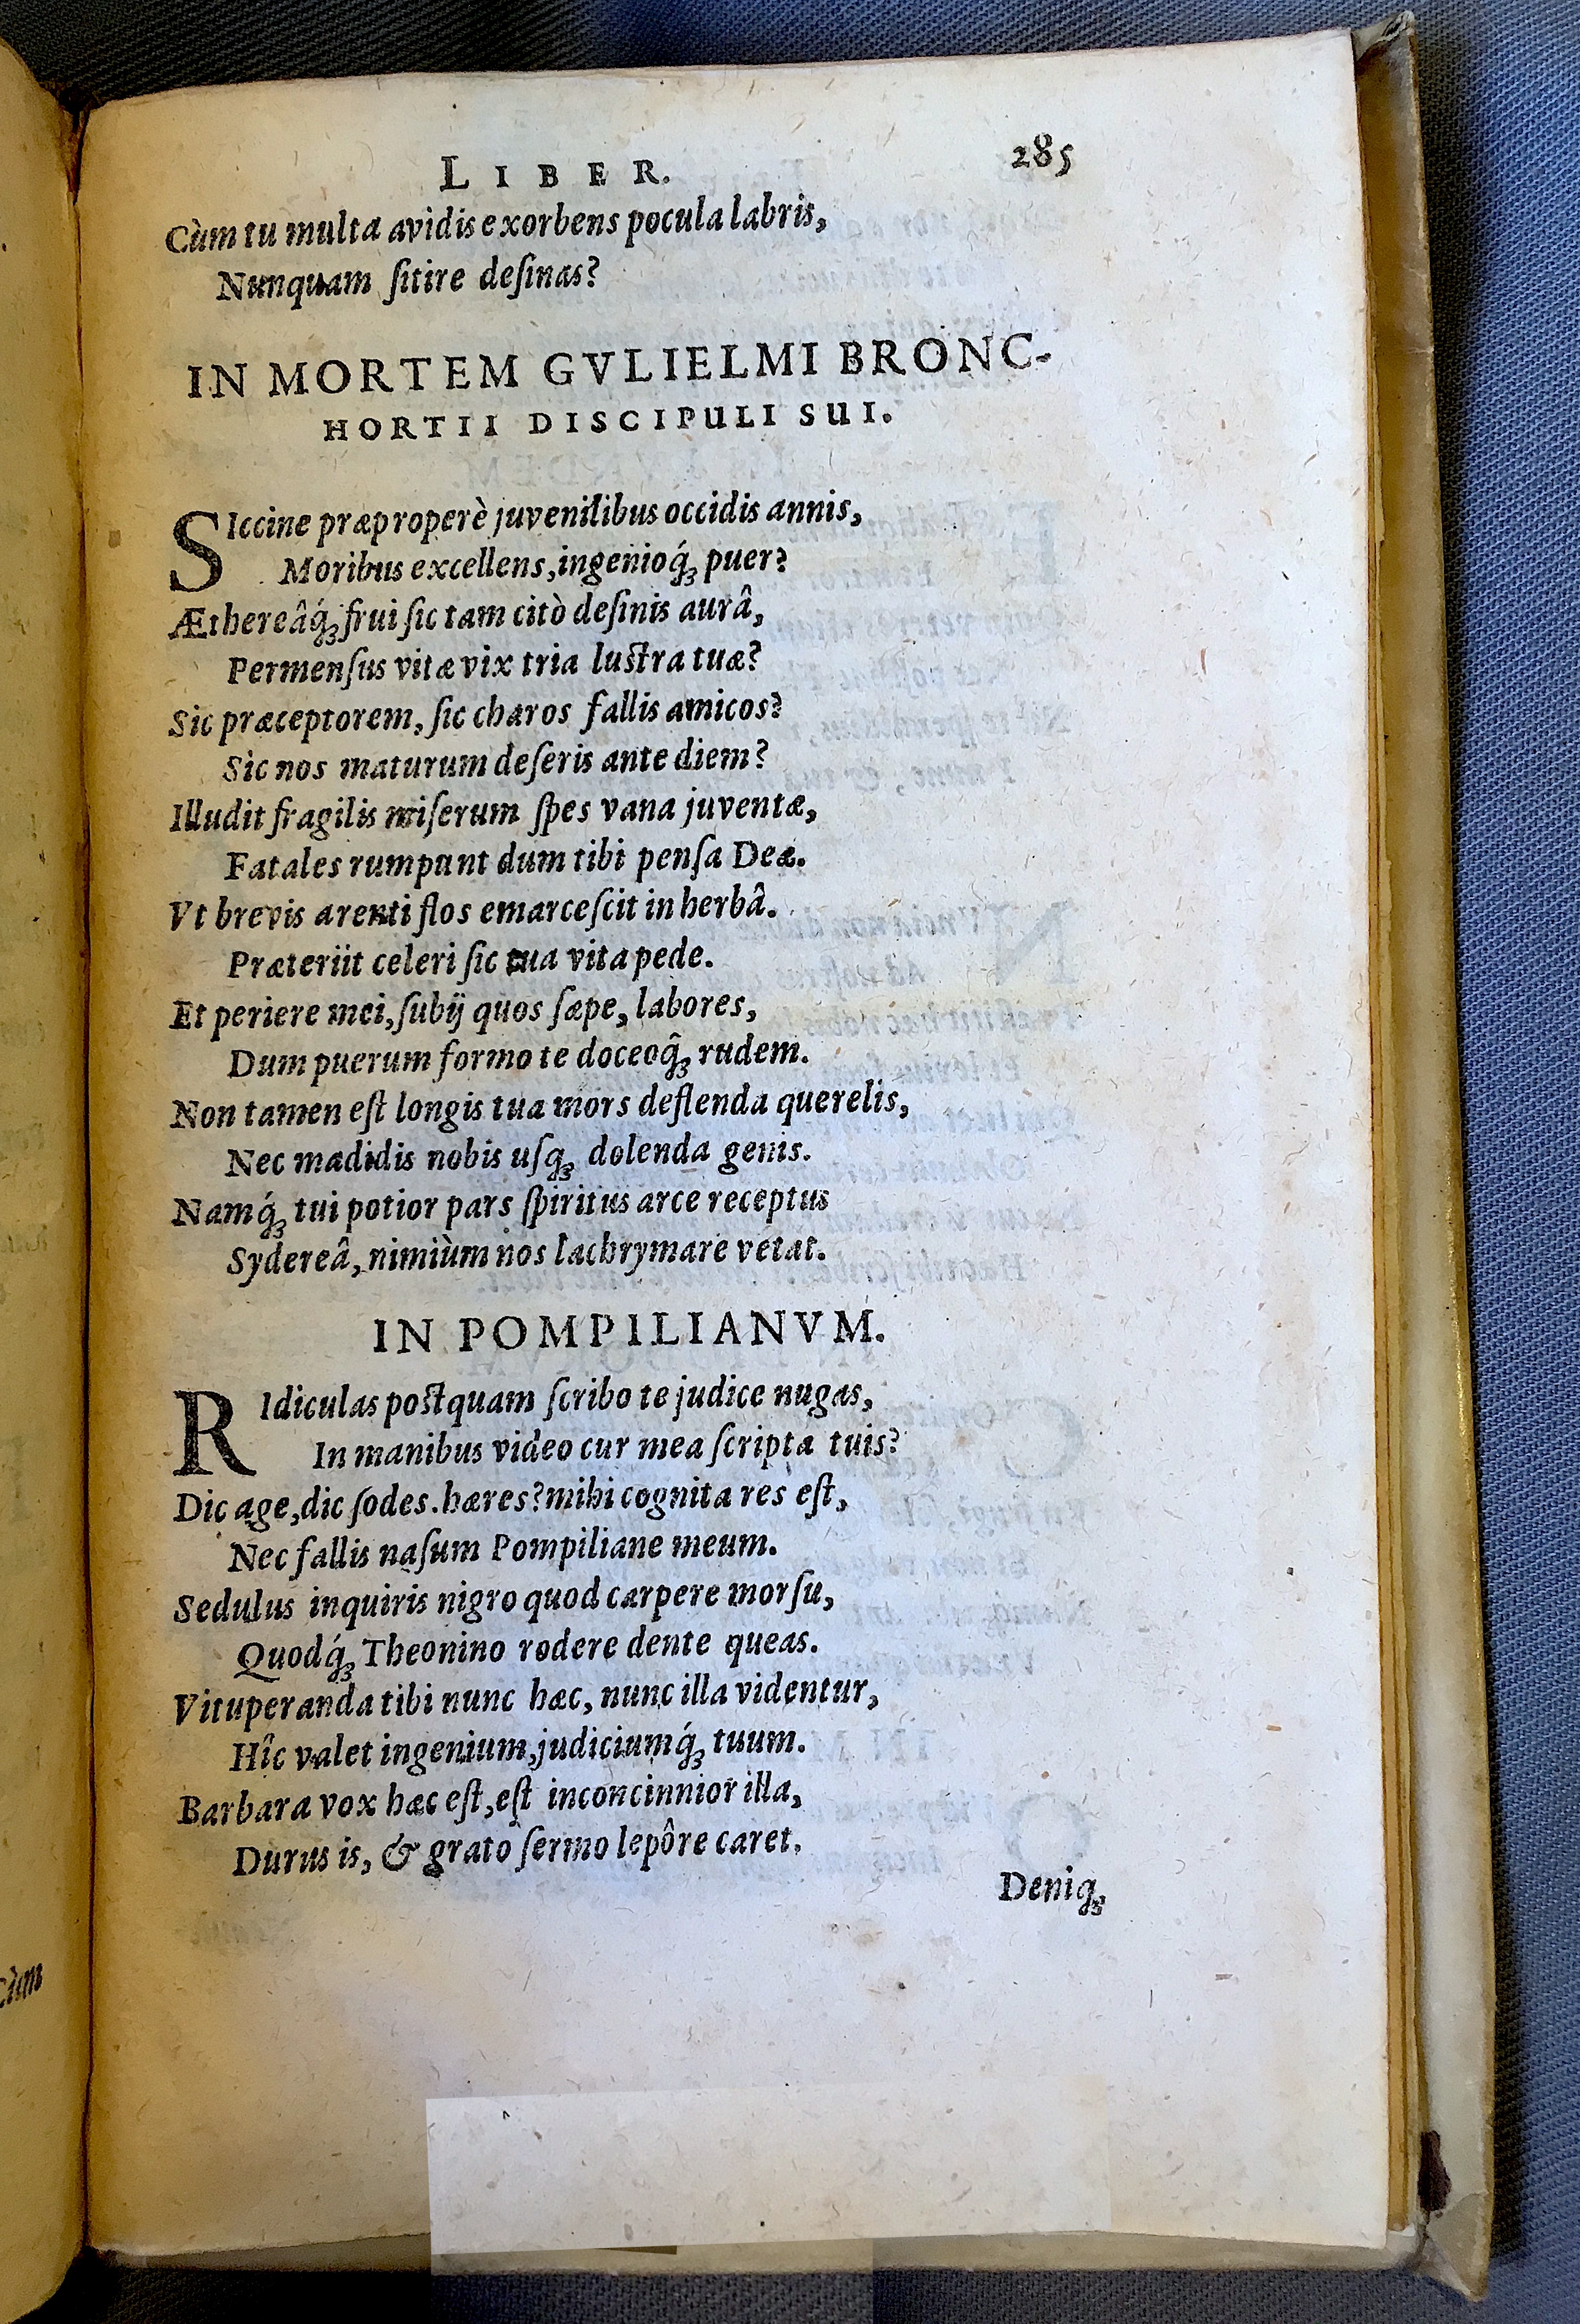 LIBER. 285
Cùm tu multa avidis exorbens pocula labris,
Nunquam ſitire deſinas?
IN MORTEM GVLIELMI BRONC-
HORTII DISCIPULI SUI.
SIccine præproperè juvenilibus occidis annis,
Moribus excellens, ingenioq́ꝫ puer?
Æthereâq́ꝫ frui ſic tam citò deſinis aurâ,
Permenſus vitæ vix tria luſtra tuæ?
Sic præceptorem, ſic charos fallis amicos?
Sic nos maturum deſeris ante diem?
Illudit fragilis miſerum ſpes vana juventæ,
Fatales rumpunt dum tibi penſa Deæ.
Vt brevis arenti flos emarceſcit in herbâ.
Præteriit celeri ſic tua vita pede.
Et periere mei, ſubij quos ſæpe, labores,
Dum puerum formo te doceoq̂ꝫ rudem.
Non tamen eſt longis tua mors deflenda querelis,
Nec madidis nobis uſqꝫ dolenda genis.
Namq́ꝫ tui potior pars ſpiritus arce receptus
Sydereâ, nimiùm nos lachrymare vetat.
IN POMPILIANVM.
RIdiculas poſtquam ſcribo te judice nugas,
In manibus video cur mea ſcripta tuis?
Dic age, dic ſodes. hæres? mihi cognita res eſt,
Nec fallis naſum Pompiliane meum.
Sedulus inquiris nigro quod carpere morſu,
Quodq́ꝫ Theonino rodere dente queas.
Vituperanda tibi nunc hæc, nunc illa videntur,
Hîc valet ingenium, judiciumq́ꝫ tuum.
Barbara vox hæc eſt, eſt inconcinnior illa,
Durus is, & grato ſermo lepôre caret.
Deniqꝫ
Cùm